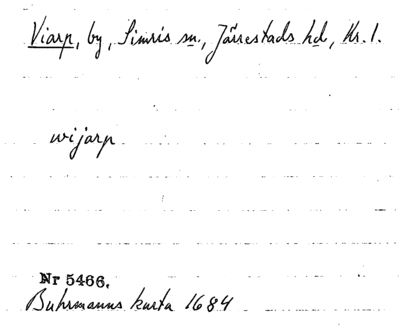 Viarp, by, Simris sn., Järrestads hd, Kr. l.
wijarp
Nr 5466.
Buhrmanns karta 1684